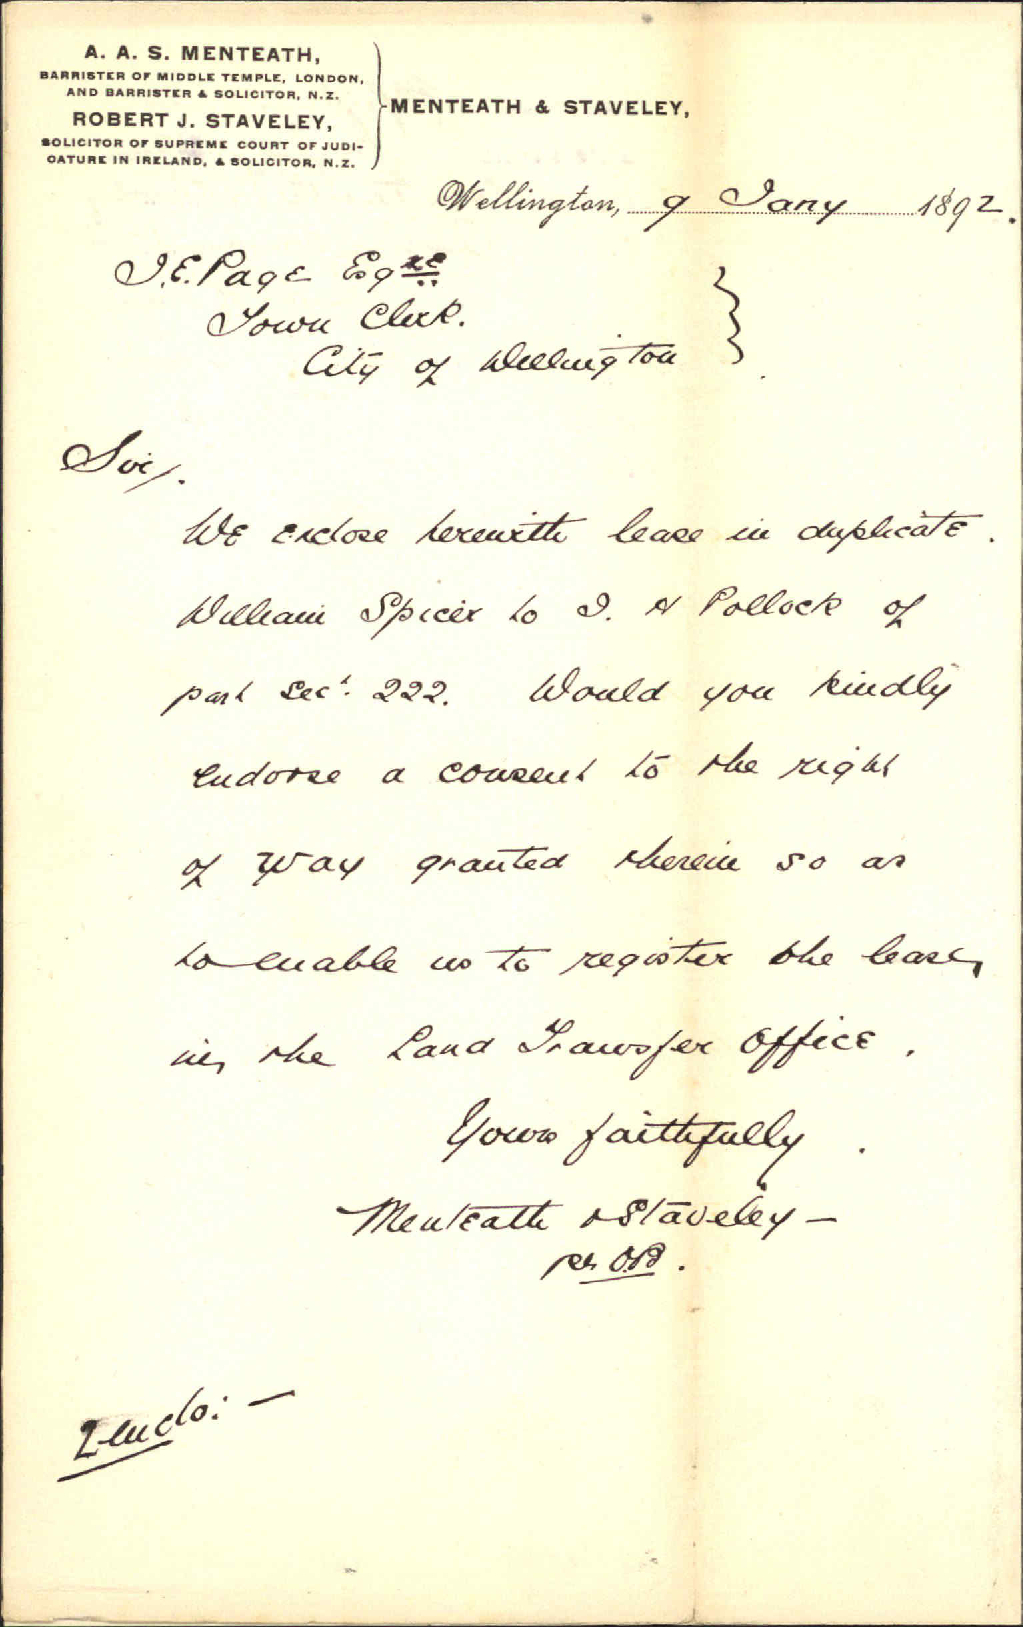 A. A. S. MENTEATH,
BARRISTER OF MIDDLE TEMPLE, LONDON,
AND BARRISTER & SOLICITOR, N.Z.
ROBERT J. STAVELEY,
SOLICITOR OF SUPREME COURT OF JUDI-
CATURE IN IRELAND, & SOLICITOR, N.Z.
MENTEATH & STAVELEY,
Wellington, 9 Jany 1892.
J.E. Page Esqre
Town Clerk.
City of Wellington
Sir/.
We enclose herewith lease in duplicate.
William Spicer to J. H Pollock of
part Sect. 222. Would you kindly
endorse a consent to the right
of way granted therein so as
to enable us to register the lease
in the Land Transfer Office.
Yours faithfully.
Menteath & Staveley —
per
2 encls: —